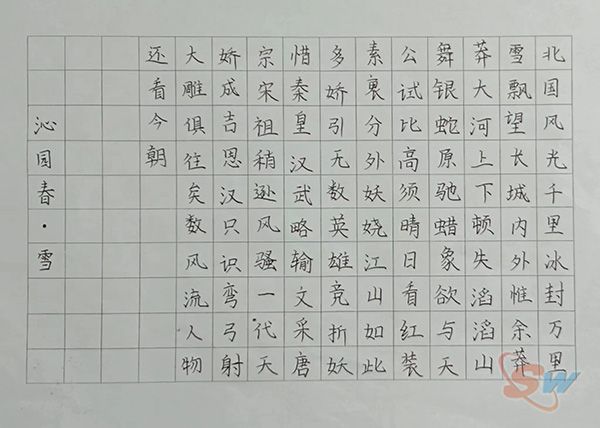 北国风光千里冰封万里
雪飘望长城内外惟余莽
莽大河上下顿失滔滔山
舞银蛇原驰蜡象欲与天
公试比高须晴日看红装
素裹分外妖娆江山如此
多娇引无数英雄竞折妖
惜秦皇汉武略输文采唐
宗宋祖稍逊风骚一代天
娇成吉恩汉只识弯弓射
大雕俱往矣数风流人物
还看今朝
沁园春·雪
SW